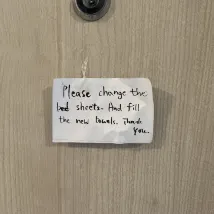 Please change the
bed sheets. And fill
the new towels. Thank
you.